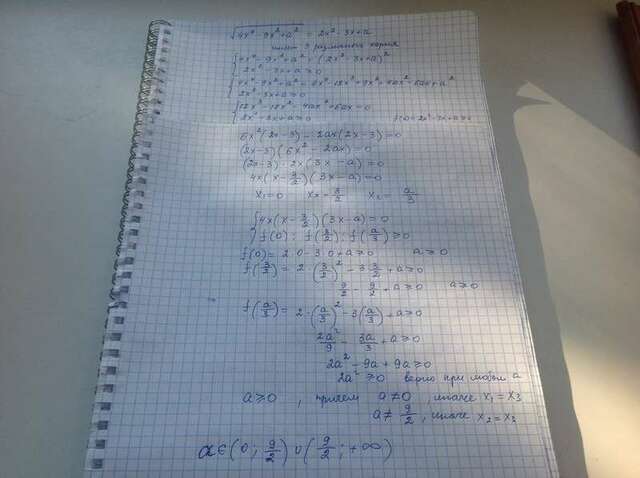 √(4x⁴ - 9x² + a²) = 2x² - 3x + a
имеет 3 различных корня
{ 4x⁴ - 9x² + a² = (2x² - 3x + a)²
2x² - 3x + a ≥ 0
2x² - 3x + a ≥ 0
{ 12x³ - 18x² - 4ax² + 6ax = 0
2x² - 3x + a ≥ 0
6x²(2x-3) - 2ax(2x-3) = 0
(2x-3)(6x² - 2ax) = 0
(2x-3)·2x(3x - a) = 0
4x(x - 3/2)(3x - a) = 0
x₁ = 0
{ 4x(x - 3/2)(3x - a) = 0
f(0); f(3/2); f(a/3) ≥ 0
f(0) = 2·0 - 3·0 + a ≥ 0 a ≥ 0
f(3/2) = 2·(3/2)² - 3·3/2 + a ≥ 0
9/2 - 9/2 + a ≥ 0 a ≥ 0
f(a/3) = 2·(a/3)² - 3(a/3) + a ≥ 0
2a²/9 - 3a/3 + a ≥ 0
2a² - 9a + 9a ≥ 0
2a² ≥ 0 верно при любом a
a ≥ 0, причем a ≠ 0, иначе x₁ = x₃
a ≠ 9/2, иначе x₂ = x₃
a ∈ (0; 9/2) ∪ (9/2; +∞)